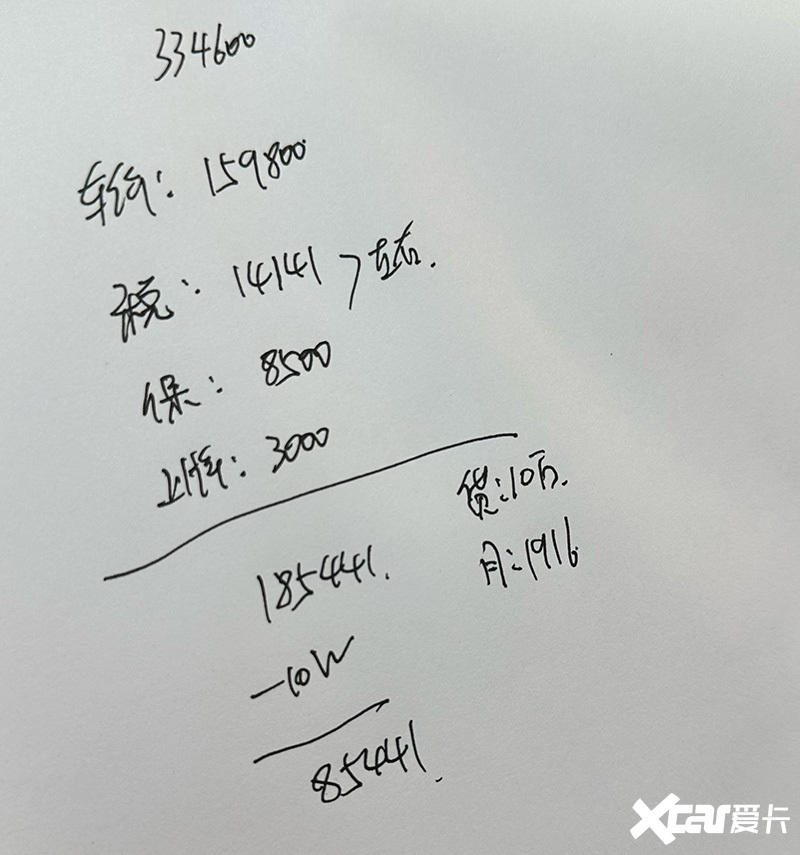 334600
车价: 159800
税: 14141 左右.
保: 8500
上牌: 3000
贷:10万.
月:1916
185441.
-10W
85441.
Xcar爱卡